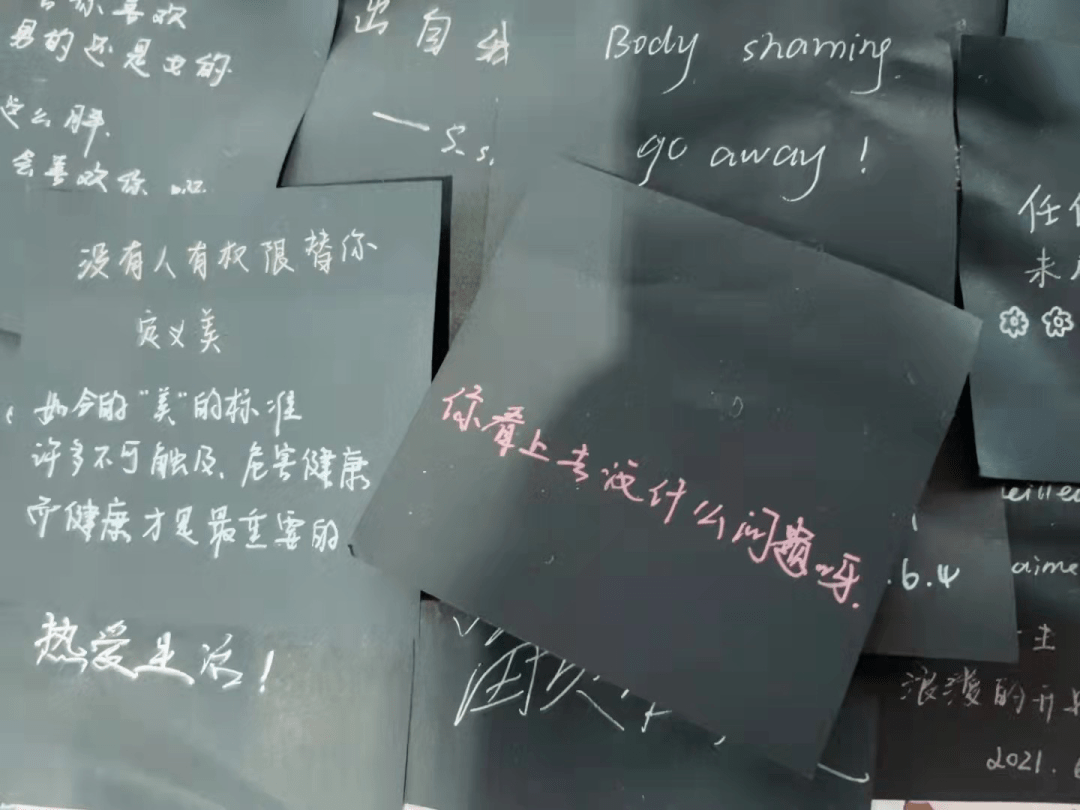 你喜欢
男的还是女的
这么胖
会喜欢你
出自我
—S.S.
Body shaming
go away!
没有人有权限替你
定义美
如今的“美”的标准
许多不可触及、危害健康
而健康才是最重要的
热爱生活!
你看上去没什么问题呀.
任
未
.6.4
aime
主
浪漫的开
2021.